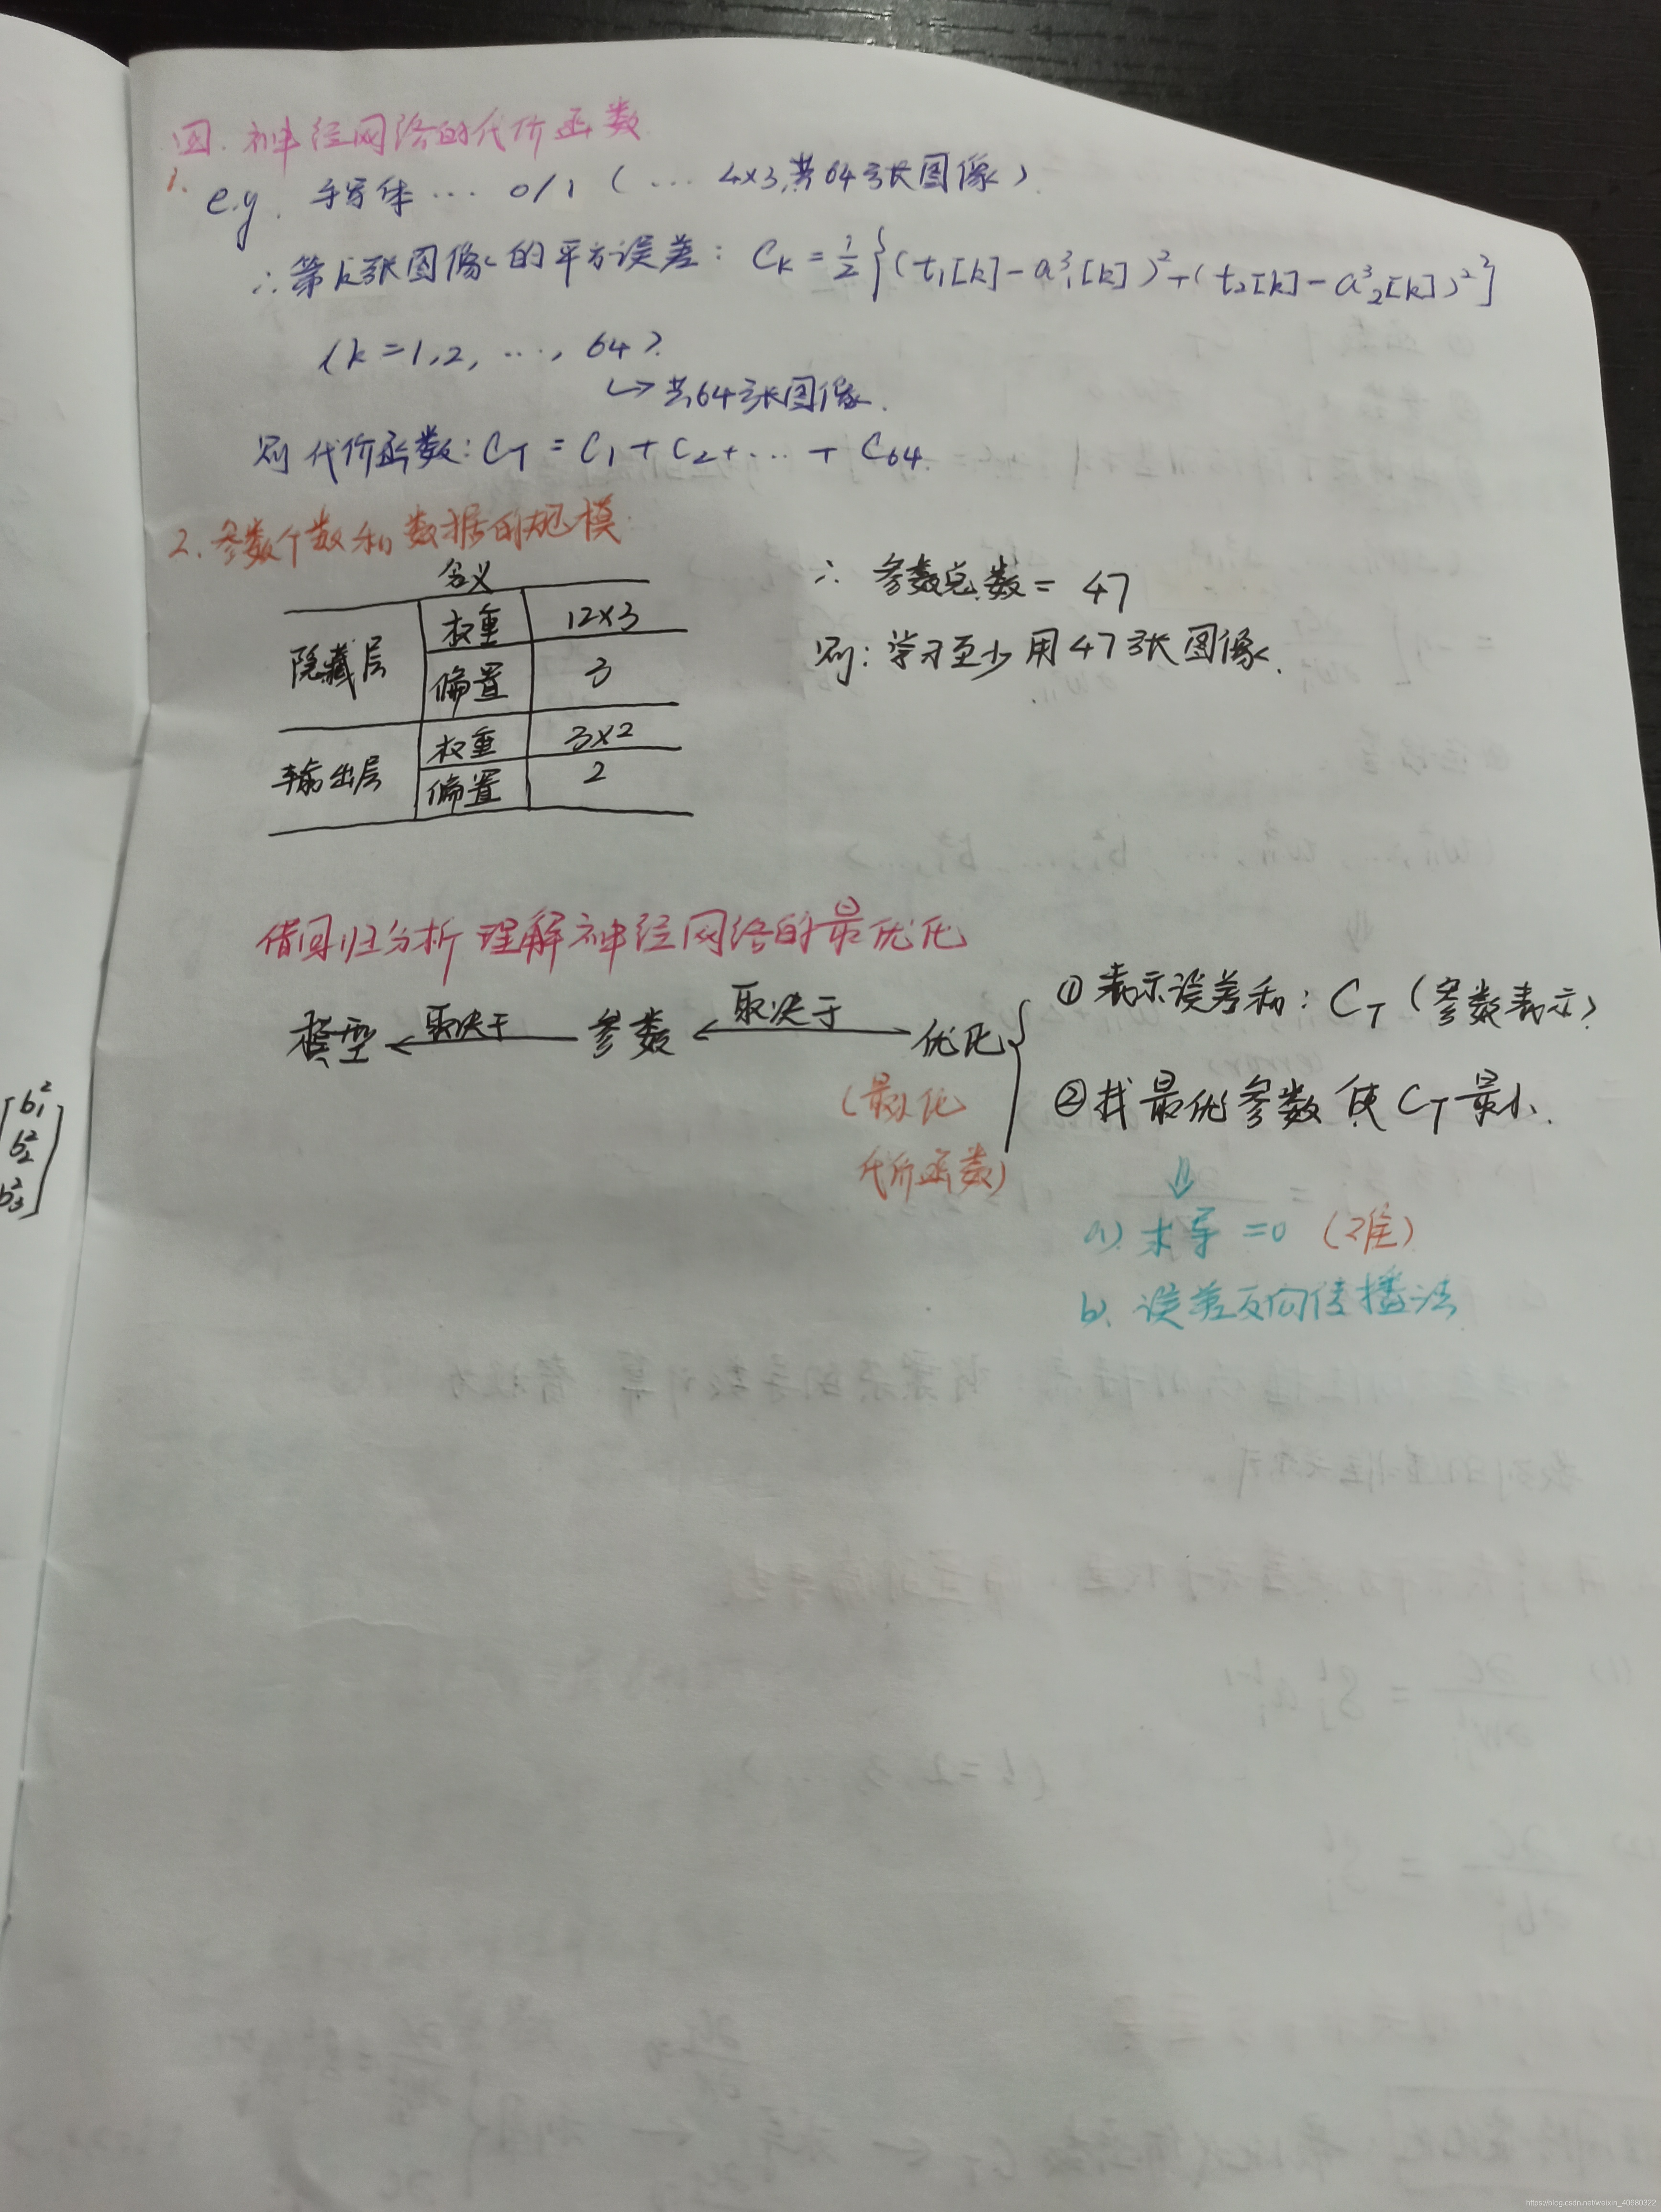 四.神经网络的代价函数
1.
e.g. 手写体 … 0/1 ( … 4×3,共64张图像)
∴第k张图像的平方误差: Ck = 1/2 {(t₁[k]-a³₁[k])²+(t₂[k]-a³₂[k])²}
(k=1,2, …, 64).
↳共64张图像.
则 代价函数: C_T = C₁ + C₂+ … + C₆₄.
2.参数个数和数据的规模
含义
隐藏层 权重 12×3
偏置 3
输出层 权重 3×2
偏置 2
∴ 参数总数 = 47
则: 学习至少用47张图像.
借回归分析理解神经网络的最优化
模型 ←取决于 参数 ←取决于 优化
(最小化
代价函数)
①表示误差和: C_T (参数表示)
②找最优参数使 C_T 最小.
⇓
a) 求导 =0 (难)
b. 误差反向传播法
b²₁
b²₂
b²₃
https://blog.csdn.net/weixin_40680322